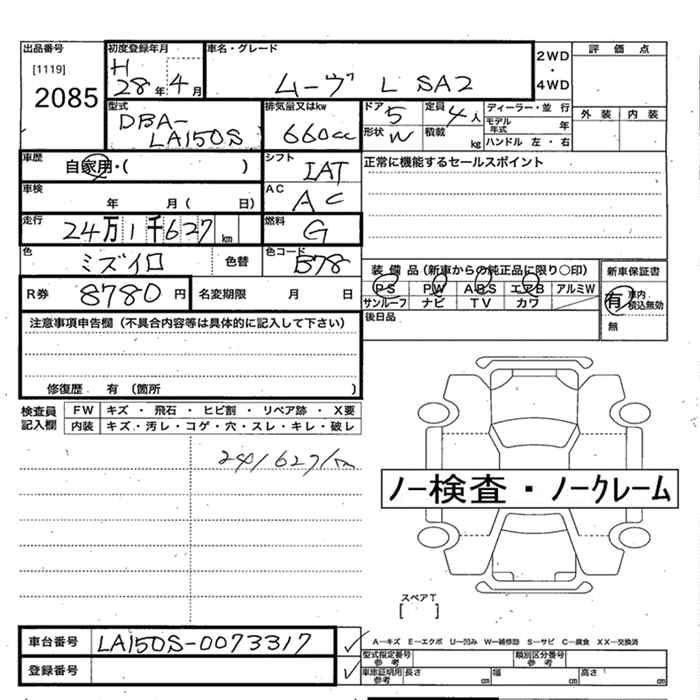 出品番号
[1119]
2085
初度登録年月
H
28年4月
車名・グレード
ムーヴ L SA2
2WD
・
4WD
評価点
外装 内装
型式
DBA-
LA150S
排気量又はkw
660cc
ドア 5
形状 W
定員 4人
積載 kg
ディーラー・並行
モデル年式 年
ハンドル 左・右
車歴
自家用・( )
シフト
IAT
正常に機能するセールスポイント
車検
年 月( 日)
AC
AC
走行
24万1千627km
燃料
G
色
ミズイロ
色替
色コード
B78
装備品(新車からの純正品に限り○印)
P·S PW ABS エアB アルミW
サンルーフ ナビ TV カワ
新車保証書
有 車内積込無効
無
R券 8780円
名変期限 月 日
後日品
注意事項申告欄(不具合内容等は具体的に記入して下さい)
修復歴 有(箇所 )
検査員記入欄
FW キズ・飛石・ヒビ割・リペア跡・X要
内装 キズ・汚レ・コゲ・穴・スレ・キレ・破レ
241627km
ノー検査・ノークレーム
スペアT
[ ]
車台番号 LA150S-0073317
登録番号
A―キズ E―エクボ U―凹み W―補修跡 S―サビ C―腐食 XX―交換済
型式指定番号 参考
類別区分番号 参考
車庫証明用 参考 長さ cm 幅 cm 高さ cm